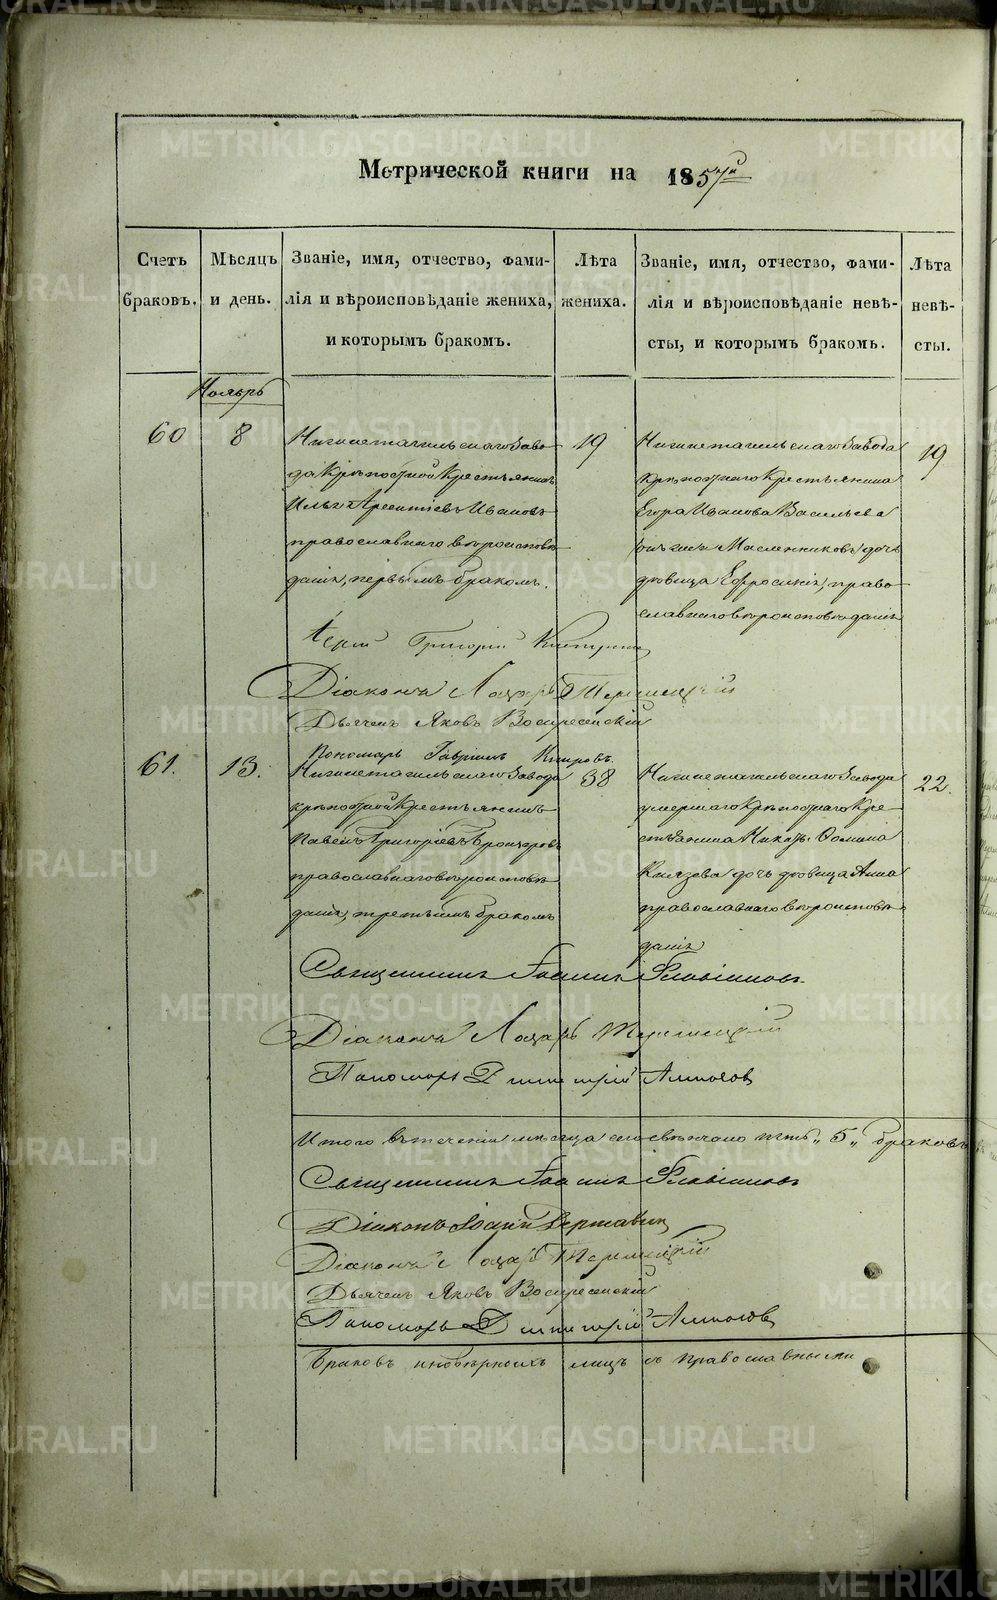 Метрической книги на 1857й
Счетъ браковъ.
Мѣсяцъ и день.
Званіе, имя, отчество, фами-
лія и вѣроисповѣданіе жениха,
и которымъ бракомъ.
Лѣта жениха.
Званіе, имя, отчество, фами-
лія и вѣроисповѣданіе невѣ-
сты, и которымъ бракомъ.
Лѣта невѣ-
сты.
Ноябрь
60
8
Нижнетагильскаго Заво-
да Крѣпостной Крестьянинъ
Илья Арсентіевъ Ивановъ
православнаго вѣроисповѣ-
данія, первымъ бракомъ.
19
Нижнетагильскаго Завода
крѣпостнаго Крестьянина
Егора Иванова Васильева
Масленниковъ дочь
дѣвица Евфросинія, право-
славнаго вѣроисповѣданія
19
Іерей Григорій
Діаконъ Лазарь
Дьячекъ Яковъ Воскресенскій
Пономарь Гавріилъ Киировъ.
61.
13.
Нижнетагильскаго Завода
крѣпостной Крестьянинъ
Павелъ Григорьевъ
православнаго вѣроисповѣ-
данія, третьимъ бракомъ
38
Нижнетагильскаго Завода
умершаго Крѣпостнаго Кре-
стьянина Никиты Фомина
Князева дочь дѣвица Анна
православнаго вѣроисповѣ-
данія
22.
Священникъ Іоаннъ Флавіановъ
Діаконъ Лазарь
Пономарь Димитрій
Итого въ теченіи мѣсяца сего вѣнчано пять „5„ браковъ
Священникъ Іоаннъ Флавіановъ
Діаконъ Державинъ
Діаконъ Лазарь
Дьячекъ Яковъ Воскресенскій
Пономарь Димитрій
Браковъ иновѣрныхъ лицъ съ православными
METRIKI.GASO-URAL.RU